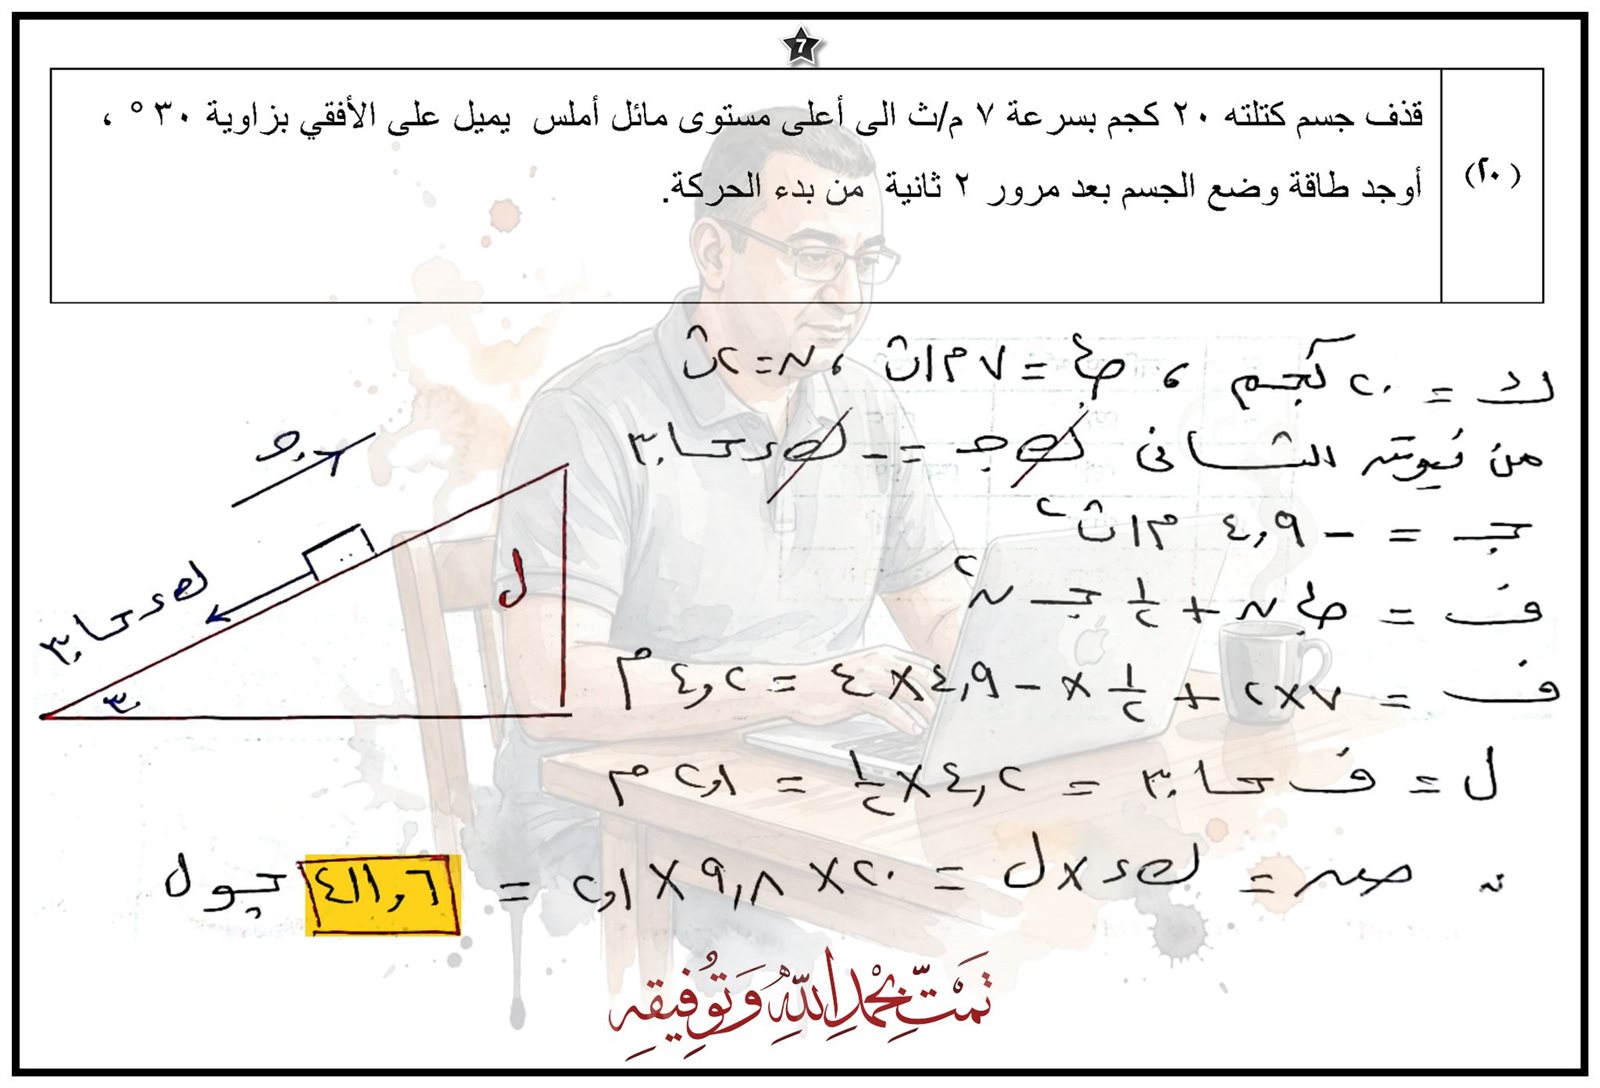 7
(٢٠)
قذف جسم كتلته ٢٠ كجم بسرعة ٧ م/ث الى أعلى مستوى مائل أملس يميل على الأفقي بزاوية ٣٠ ° ،
أوجد طاقة وضع الجسم بعد مرور ٢ ثانية من بدء الحركة.
ك = ٢٠ كجم ، ع. = ٧ م/ث ، ن = ٢ ث
من نيوتن الثانى ك جـ = - ك ء حا ٣٠
جـ = - ٤,٩ م/ث٢
ف = ع. ن + ١/٢ جـ ن٢
ف = ٧×٢ + ١/٢ × - ٤,٩ × ٤ = ٤,٢ م
ل = ف حا ٣٠ = ٤,٢ × ١/٢ = ٢,١ م
∴ ضـ = ك ء × ل = ٢٠ × ٩,٨ × ٢,١ = ٤١١,٦ جول
ك ء حا ٣٠
٣٠
ل
تمت بحمد الله وتوفيقه